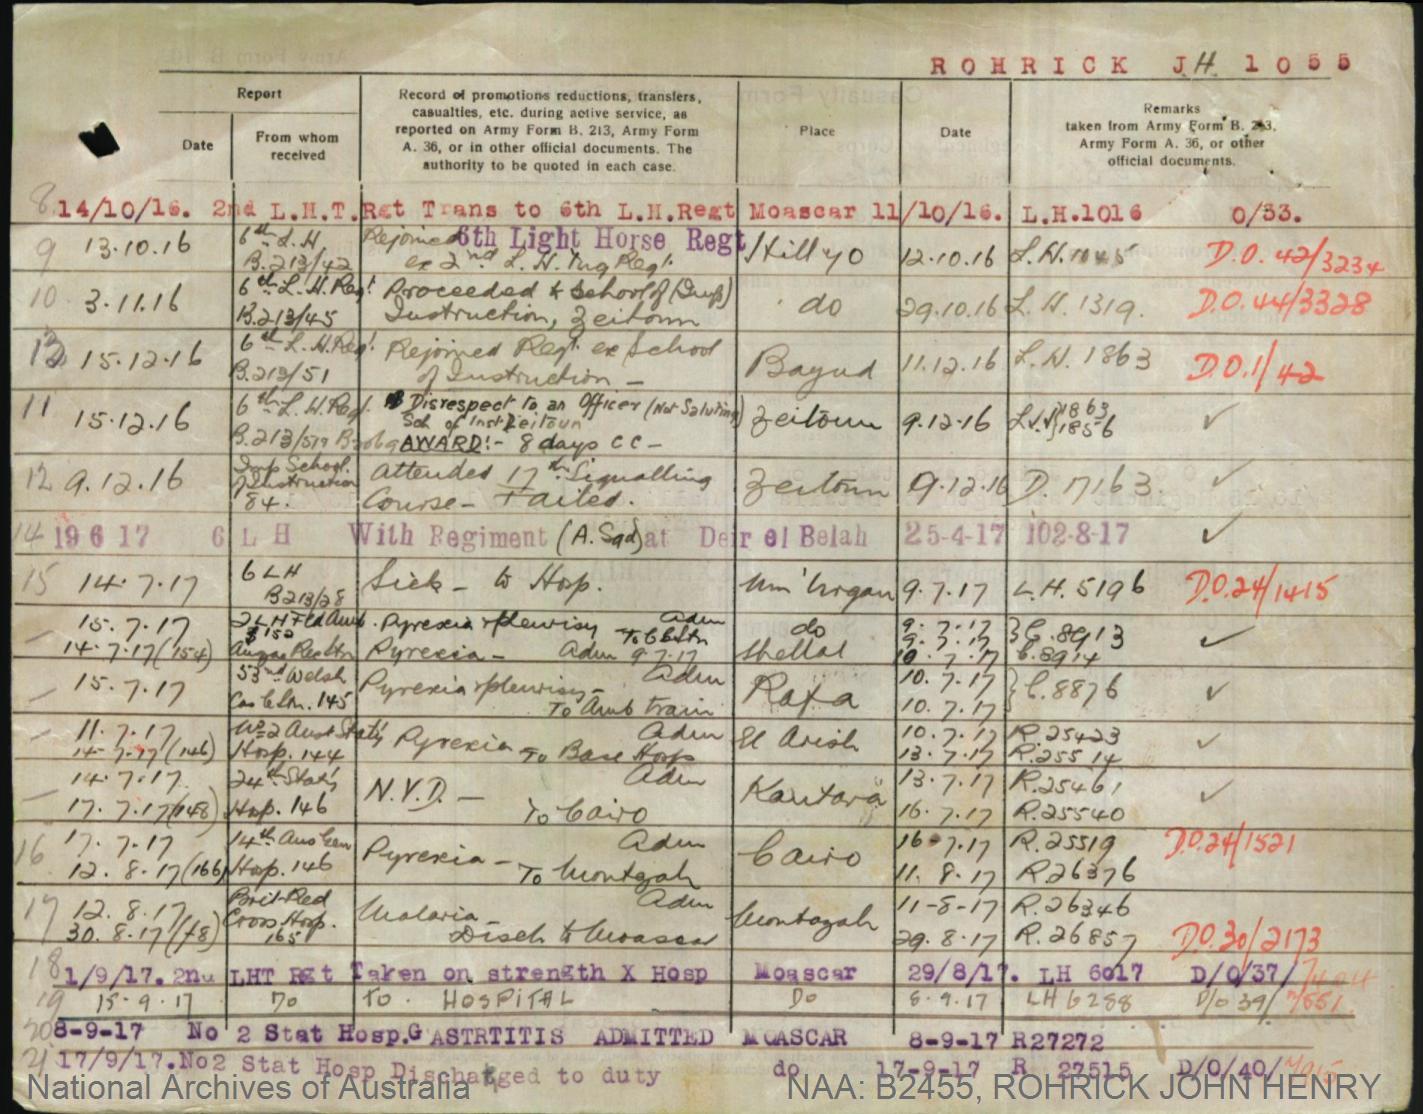 ROHRICK JH 1055
Report
Record of promotions reductions, transfers,
casualties, etc. during active service, as
reported on Army Form B. 213, Army Form
A. 36, or in other official documents. The
authority to be quoted in each case.
Place
Date
Remarks
taken from Army Form B. 213,
Army Form A. 36, or other
official documents.
Date
From whom
received
8 14/10/16. 2nd L.H.T.Rgt Trans to 6th L.H.Regt Moascar 11/10/16. L.H.1016 0/33.
9 13.10.16 6th L.H. Rejoined 6th Light Horse Regt Hill 70 12.10.16 L.H. D.O. 42/3234
B.213/42 ex 2nd L.H. Trg Regt.
10 3.11.16 6th L.H. Regt Proceeded to School of (Imp) do 29.10.16 L.H. 1319. D.O.44/3328
B.213/45 Instruction, Zeitoun
13 15.12.16 6th L.H. Regt. Rejoined Regt. ex School Bayud 11.12.16 L.H. 1863 D.O.1/42
B.213/51 of Instruction -
11 15.12.16 6th L.H. Regt. Disrespect to an Officer (Not Saluting) Zeitoun 9.12.16 1863
Sch of Inst Zeitoun 1856
B.213/51 AWARD:- 8 days CC -
12 9.12.16 Imp School. Attended 17th Signalling Zeitoun 9.12.16 D. 7163
of Instruction
84. Course - Failed.
14 19 6 17 6 L H With Regiment (A. Sqd) at Deir el Belah 25-4-17 102-8-17
15 14.7.17 6 LH Sick - to Hosp. 9.7.17 L.H. 5196 D.O.24/1415
B213/28
15.7.17 2 LH Fld Amb. Pyrexia & pleurisy Adm do 9.7.17 C.8913
152 To C Clr Stn 9.7.17
14.7.17 (154) Anzac Rec Stn Pyrexia - Adm 9.7.17 Shellal 10.7.17 C.8914
15.7.17 53rd Welsh Pyrexia & pleurisy - Adm Rafa 10.7.17 C.8876
Cas Cl Stn. 145 To Amb train 10.7.17
11.7.17 No 2 Aust Stat's Pyrexia Adm El Arish 10.7.17 R.25423
14.7.17 (146) Hosp. 144 To Base Hosp 13.7.17 R.25514
14.7.17. 24th Stat's N.Y.D. - Adm Kantara 13.7.17 R.25461
17.7.17 (148) Hosp. 146 To Cairo 16.7.17 R.25540
16 17.7.17 14th Aus Gen Pyrexia - Adm Cairo 16.7.17 R.25519 D.O.24/1521
12.8.17 (166) Hosp. 146 To Montazah 11.8.17 R.26376
17 12.8.17 Brit Red Malaria - Adm Montazah 11-8-17 R.26346
Cross Hosp.
30.8.17 165 Disch to Moascar 29.8.17 R.26857 D.O.30/2173
18 1/9/17. 2nd LHT Rgt Taken on strength X Hosp Moascar 29/8/17. LH 6017 D/O/37/
19 15.9.17 Do To. HOSPITAL Do 8.9.17 LH 6288 D/O 39/
20 8-9-17 No 2 Stat Hosp. GASTRTITIS ADMITTED MOASCAR 8-9-17 R27272
21 17/9/17. No2 Stat Hosp Discharged to duty do 17-9-17 R 27515 D/O/40/
National Archives of Australia NAA: B2455, ROHRICK JOHN HENRY